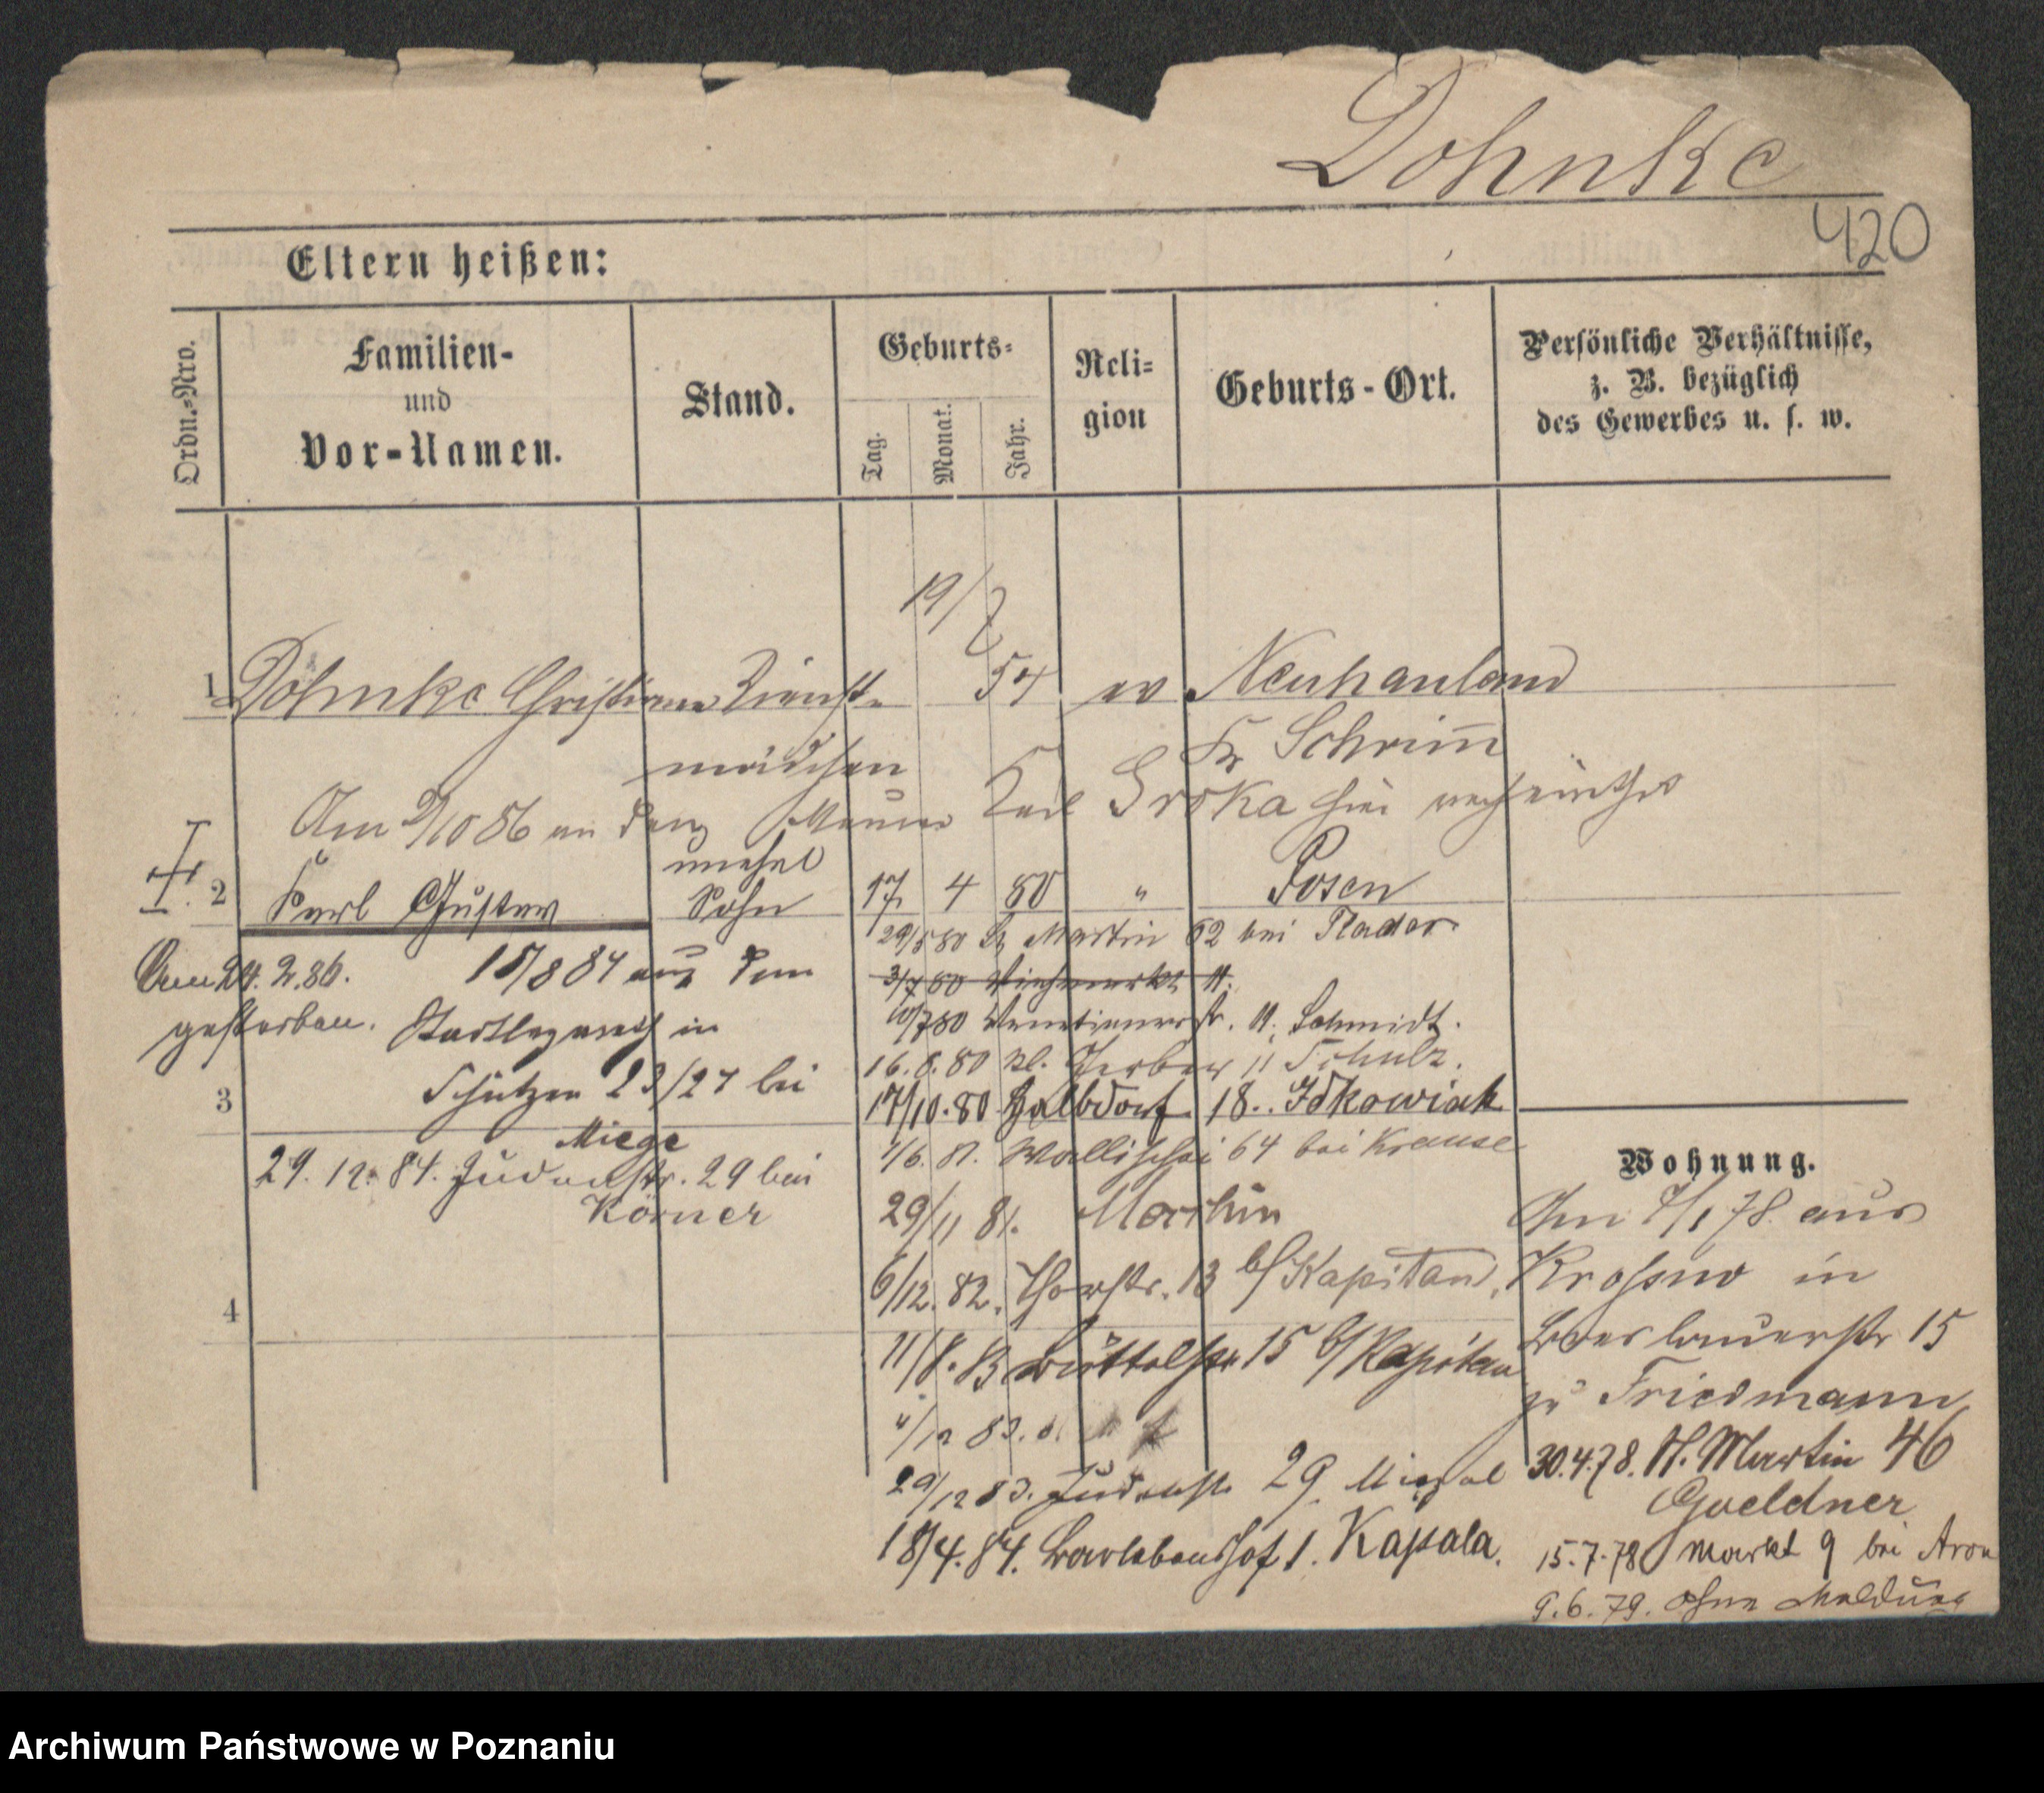 Dohnke
420
Eltern heißen:
Ordn.-Nro.
Familien-
und
Vor-Namen.
Stand.
Geburts-
Tag.
Monat.
Jahr.
Reli-
gion
Geburts-Ort.
Persönliche Verhältnisse,
z. B. bezüglich
des Gewerbes u. s. w.
19/7
1 Dohnke Christiane Dienst- 54 ev Neuhauland
mädchen Kr Schrim̄
Am 9/10 86 an den Maurer Karl Sroka hier verheirathet
unehel
2 Karl Gustav Sohn 17 4 80 " Posen
29/5 80 St Martin 62 bei Nadar
Am 24.2.86. 15/8 84 aus dem
gestorben. Stadtlazareth in
3/7 80 Viehmarkt 11.
10/7 80 Venetianerstr. 11. Schmidt.
Schützen 23/24 bei
Miege
16.8.80 kl. Gerber 11 Schulz.
3
17/10.80 Halbdorf 18. Idkowiak
1/6.81. Wallischei 64 bei Krause
29.12.84. Judenstr. 29 bei
Körner
29/11 81. Martin
6/12.82. Thorstr. 13 b/ Kapitan,
4
11/8.83 Büttelstr 15 b/ Kapitan
4/12 83.
29/12 83. Judenstr 29
18/4.84. Barlebenshof 1. Kapala.
Wohnung.
Am 4/1 78. aus
Krosno in
Breslauerstr 15
zu Friedmann
30.4.78. St. Martin 46
Goeldner
15.7.78 Markt 9 bei Aron
9.6.79. ohne Meldung
Archiwum Państwowe w Poznaniu